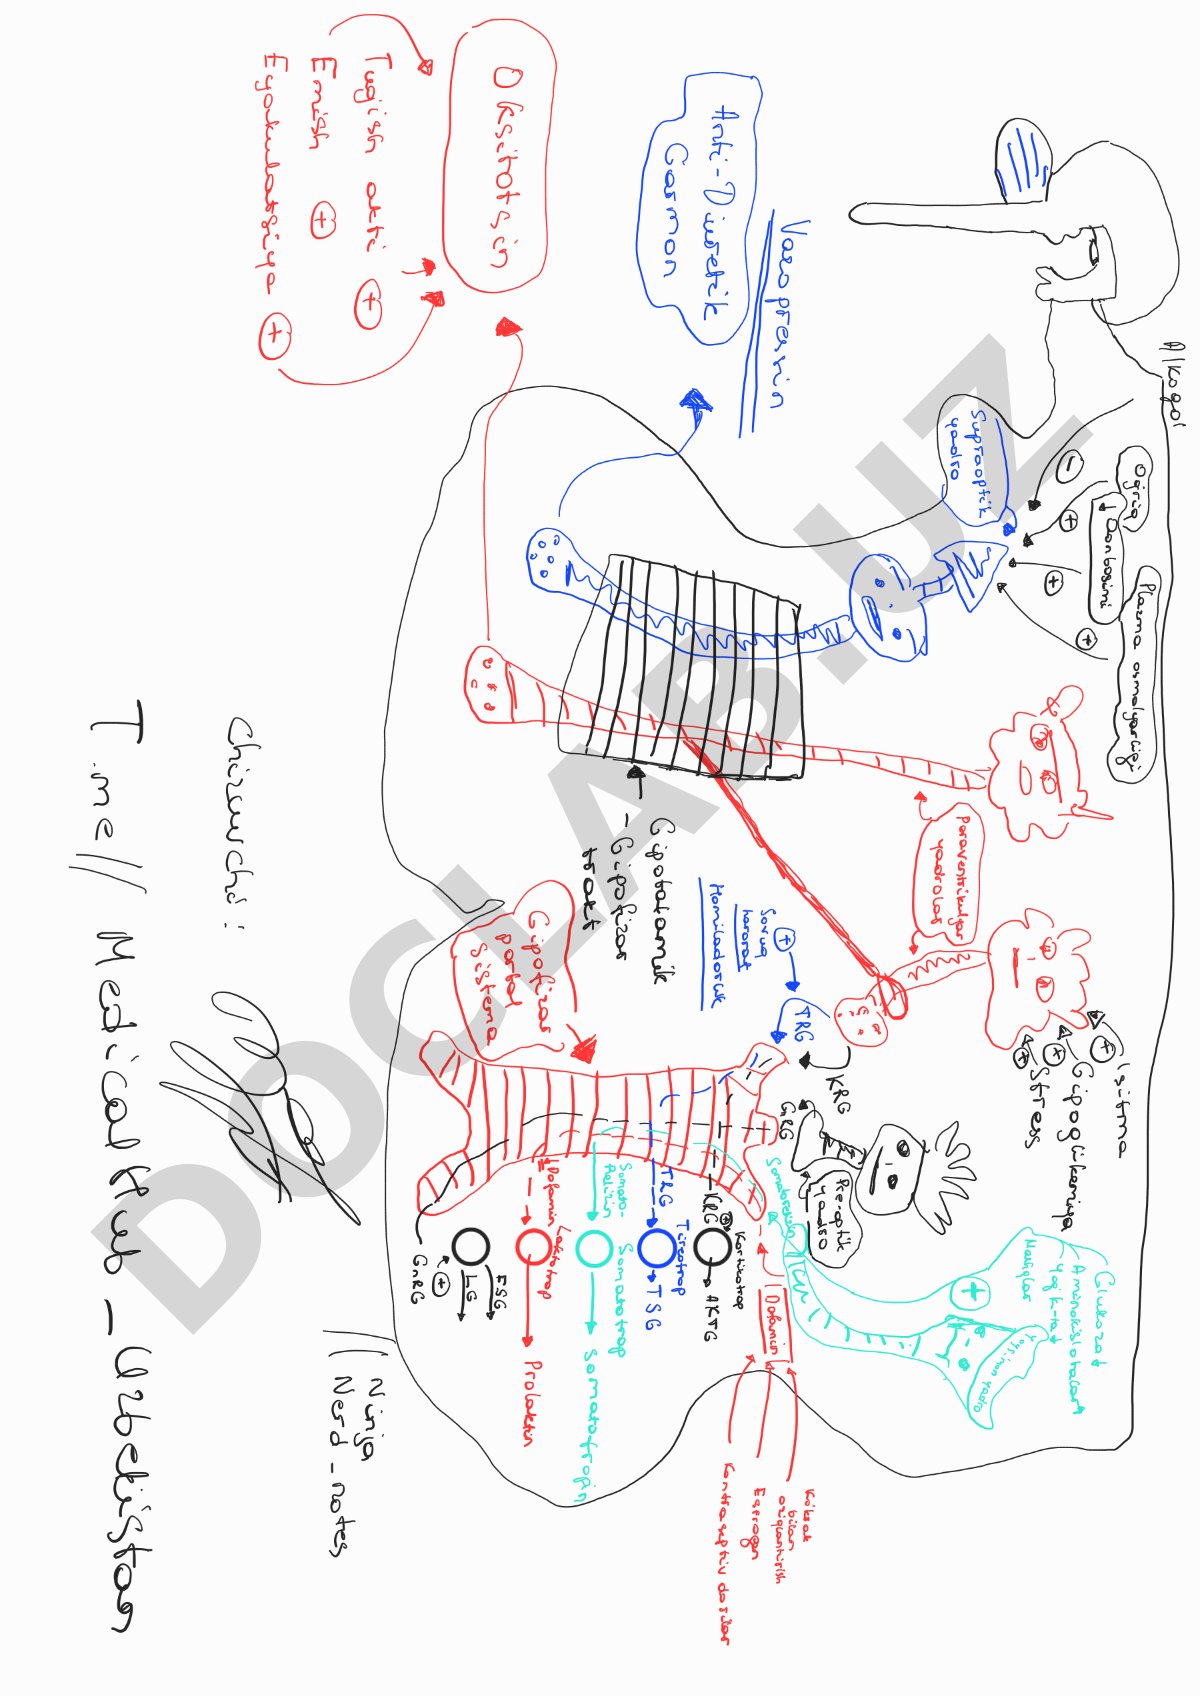 Alkogol
Og'riq
↓ Qon bosimi
Plazma osmolyarligi
−
+
+
+
Supraoptik
yadro
Vazopressin
Anti-Diuretik
Gormon
Oksitotsin
Tug'ish akti +
Emish +
Eyakulatsiya +
Paraventrikulyar
yadrolar
Isitma
+
Gipoglikemiya
+
Stress
+
Gipotalamik
- Gipofizar
trakt
Sovuq
harorat
+
Homiladorlik
TRG
KRG
GnRG
Pre-optik
yadro
Somatorelisin
Glukoza↓
Aminokislotalar↑
Yog' k-ta↓
Mashqlar
+
Yoysimon yadro
Gipofizar
portal
sistema
KRG
+
Kortikotrop
AKTG
TRG
Tireotrop
TSG
Somato-
Relizin
Somatotrop
Somatotropin
Dofamin
Laktotrop
Prolaktin
FSG
LG
+
GnRG
Dofamin
Ko'krak
bilan
oziqlantirish
Estrogen
Kontraseptiv dorilar
Chizuvchi:
T.me// Medical Hub _ Uzbekistan
// Ninja
Nerd _ notes
DOCLAB.UZ